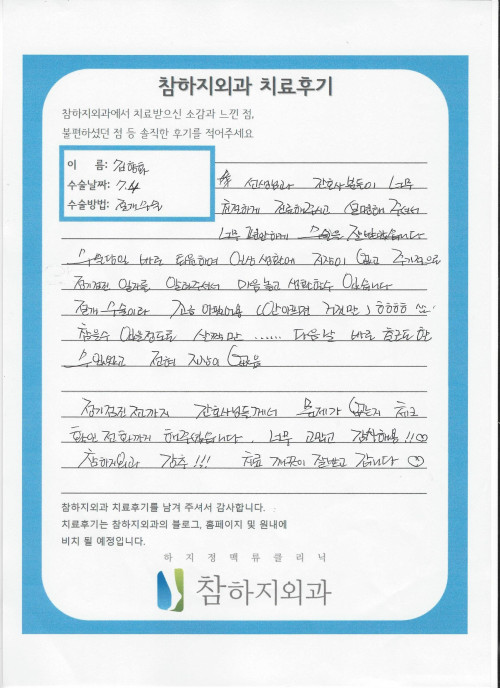 참하지외과 치료후기
참하지외과에서 치료받으신 소감과 느낀 점,
불편하셨던 점 등 솔직한 후기를 적어주세요
이 름:
수술날짜: 7.4
수술방법: 절개수술
선생님과 간호사분들이 너무
친절하게 진료해주시고 설명해 주셔서
너무 편안하게 수술을 잘 받았습니다
수술당일 바로 퇴원하여 일상생활에 지장이 없고 주기적으로
정기검진 일자를 알려주셔서 마음놓고 생활할수 있습니다
절개 수술이라 조금 아팠지만 (안아프면 거짓말) ㅎㅎㅎㅎ
참을수 있을정도로 살짝만 ...... 다음날 바로 출근도 할
수 있었고 전혀 지장이 없음
정기검진 전까지 간호사님들께서 문제가 없는지 체크
확인 전화까지 해주셨습니다. 너무 고맙고 감사해용 !!
참하지외과 강추 !!! 치료 깨끗이 잘받고 갑니다
참하지외과 치료후기를 남겨 주셔서 감사합니다.
치료후기는 참하지외과의 블로그, 홈페이지 및 원내에
비치 될 예정입니다.
하지정맥류클리닉
참하지외과